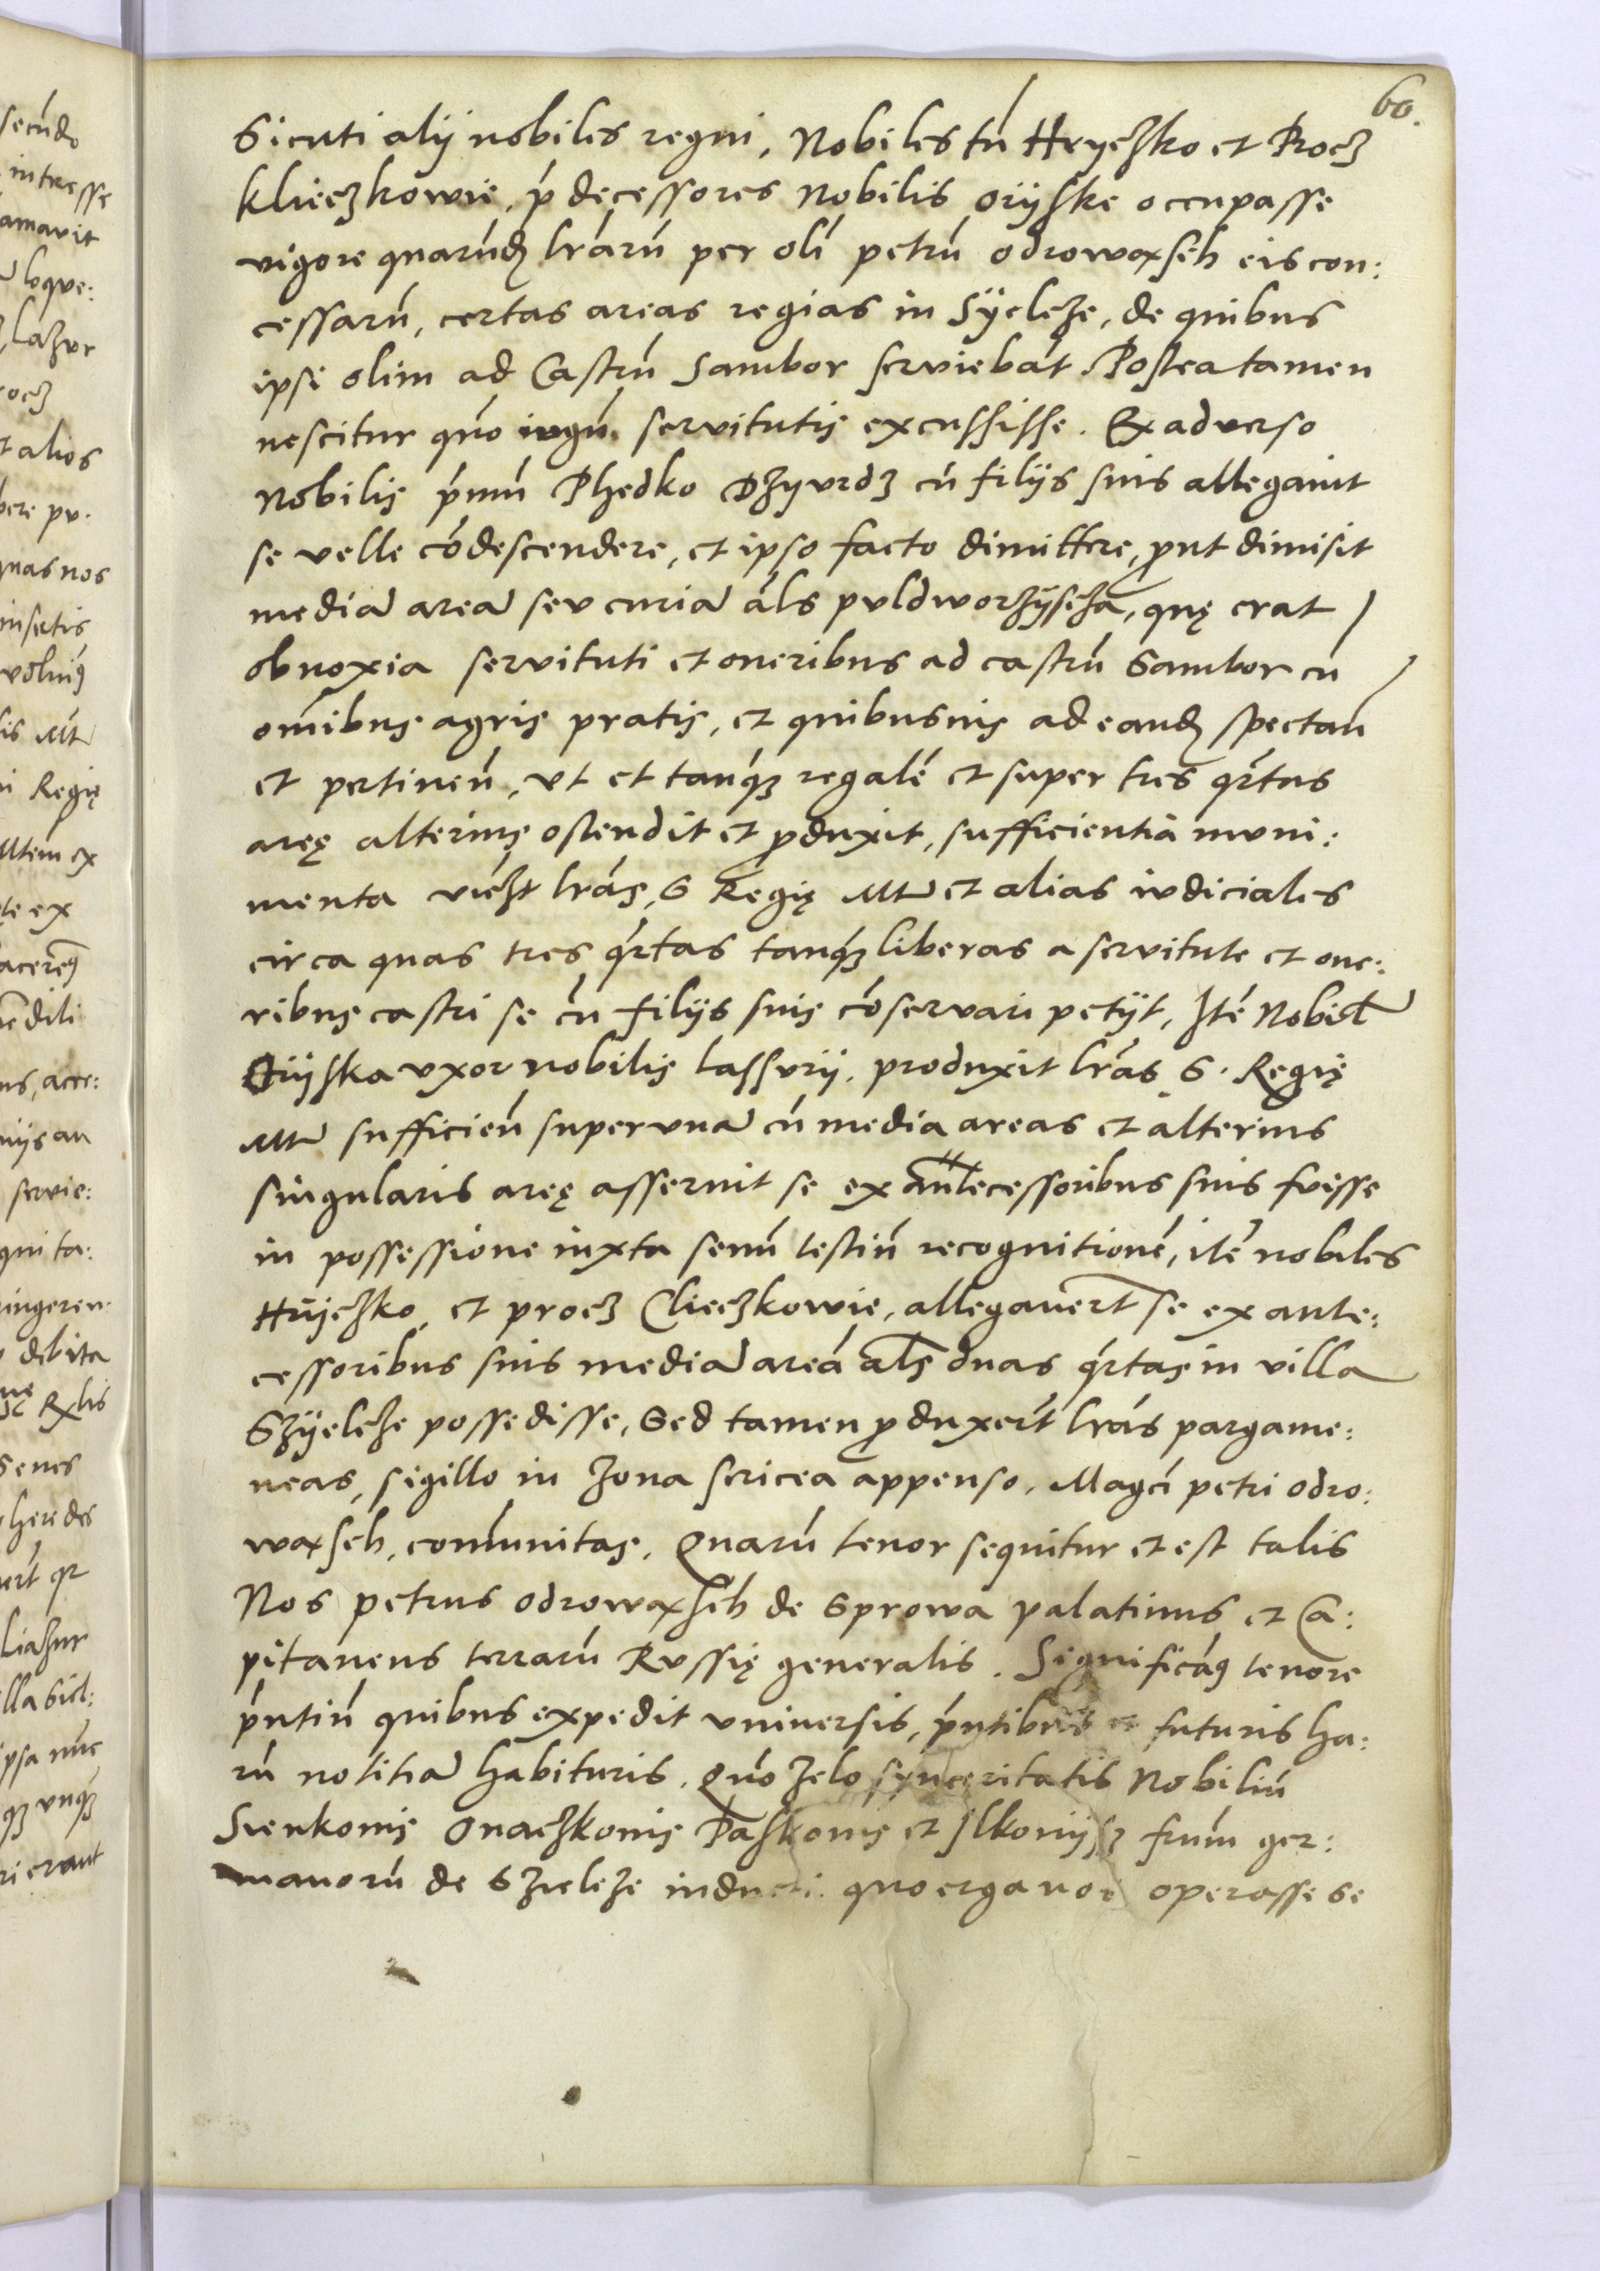 60.
Sicuti alij nobiles regni, Nobiles tn̄ Hryczko et Procz
Klieczkowie, p̄decessores nobilis Orijske occupasse
vigore quarūdȝ lrārū per olī petrū odrowaxsch eis con:
cessarū, certas areas regias in Syelcze, de quibus
ipsi olim ad Castrū Sambor serviebāt Postea tamen
nescitur quō iugū servitutis excussisse. Ex adverso
Nobilis p̄mū Phedko Dzyurdz cū filijs suis allegavit
se velle cōdescendere, et ipso facto dimittere, prut dimisit
mediā areā seu curiā āls puldworzijscza, quę erat
obnoxia servituti et oneribus ad castrū Sambor cū
om̄ibus agris pratis, et quibusuis ad eandȝ spectan̄
et pertinen̄, ut et tanq̄ȝ regalē et super tres q̄rtas
aręę alterius ostendit et produxit, sufficientia muni:
menta viczt lrās, S Regię Mtꝭ et alias iudiciales
circa quas tres q̄rtas tanq̄ȝ liberas a servitute et one:
ribus castri se cū filijs suis cōservari petijt, Itē Nobil
Orijska uxor nobilis lassurij, produxit lrās S. Regię
Mtꝭ sufficien̄ super unā cū media areas et alterius
singularis aręę asseruit se ex antecessoribus suis fuisse
in possessione iuxta senū testiū recognitionē, itē nobiles
Hrijczko, et procz Clieczkowie, allegaverūt se ex ante:
cessoribus suis mediā areā als duas q̄rtas in villa
Szijelcze possedisse, Sed tamen produxerūt lrās pargame:
neas, sigillo in zona sericea appenso, Magci petri odro:
waxsch, com̄unitas, Quarū tenor sequitur et est talis
Nos petrus odrowaxsch de Sprowa palatinus et Ca:
pitaneus terrarū Russię generalis. Significāꝰ tenore
p̄ntiū quibus expedit universis, p̄ntibus et futuris ha:
rū notitiā habituris. Quō zelo synceritatis Nobiliū
Sienkonis Onaczkonis Paskonis et Ilkonijs frūm ger:
manorū de Szielcze inducti quo erga nos operasse se